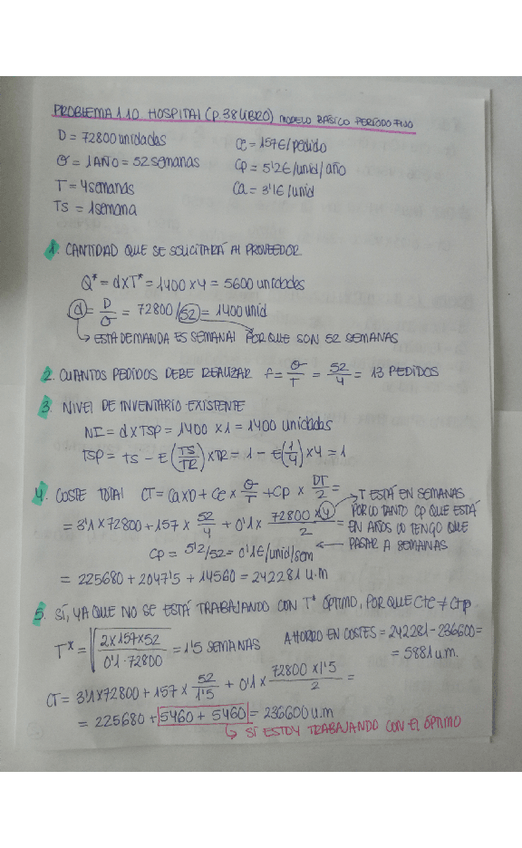 PROBLEMA 1.10. HOSPITAL (p.38 LIBRO) MODELO BÁSICO PERÍODO FIJO
D = 72800 unidades
Ce = 157€/pedido
θ = 1 AÑO = 52 semanas
Cp = 5'2€/unid/año
T = 4 semanas
Ca = 3'1€/unid
TS = 1 semana
1. CANTIDAD QUE SE SOLICITARÁ AL PROVEEDOR.
Q* = d x T* = 1400 x 4 = 5600 unidades
d = D/θ = 72800/52 = 1400 unid
↳ ESTA DEMANDA ES SEMANAL PORQUE SON 52 SEMANAS
2. CUANTOS PEDIDOS DEBE REALIZAR f = θ/T = 52/4 = 13 PEDIDOS
3. NIVEL DE INVENTARIO EXISTENTE
NI = d x TSP = 1400 x 1 = 1400 unidades
TSP = TS - E(TS/TR) x TR = 1 - E(1/4) x 4 = 1
4. COSTE TOTAL CT = Ca x D + Ce x θ/T + Cp x DT/2 =
= 3'1 x 72800 + 157 x 52/4 + 0'1 x 72800 x 4/2 =
→ T ESTÁ EN SEMANAS
POR LO TANTO CP QUE ESTÁ
EN AÑOS LO TENGO QUE
PASAR A SEMANAS
Cp = 5'2/52 = 0'1€/unid/sem
= 225680 + 2041'5 + 14560 = 242281 u.m
5. SÍ, YA QUE NO SE ESTÁ TRABAJANDO CON T* ÓPTIMO, PORQUE Cte ≠ Ctp
T* = √(2x157x52/0'1·72800) = 1'5 SEMANAS
AHORRO EN COSTES = 242281 - 236600 =
= 5881 u.m.
CT = 3'1 x 72800 + 157 x 52/1'5 + 0'1 x 72800 x 1'5/2 =
= 225680 + 5460 + 5460 = 236600 u.m
↳ SÍ ESTOY TRABAJANDO CON EL ÓPTIMO